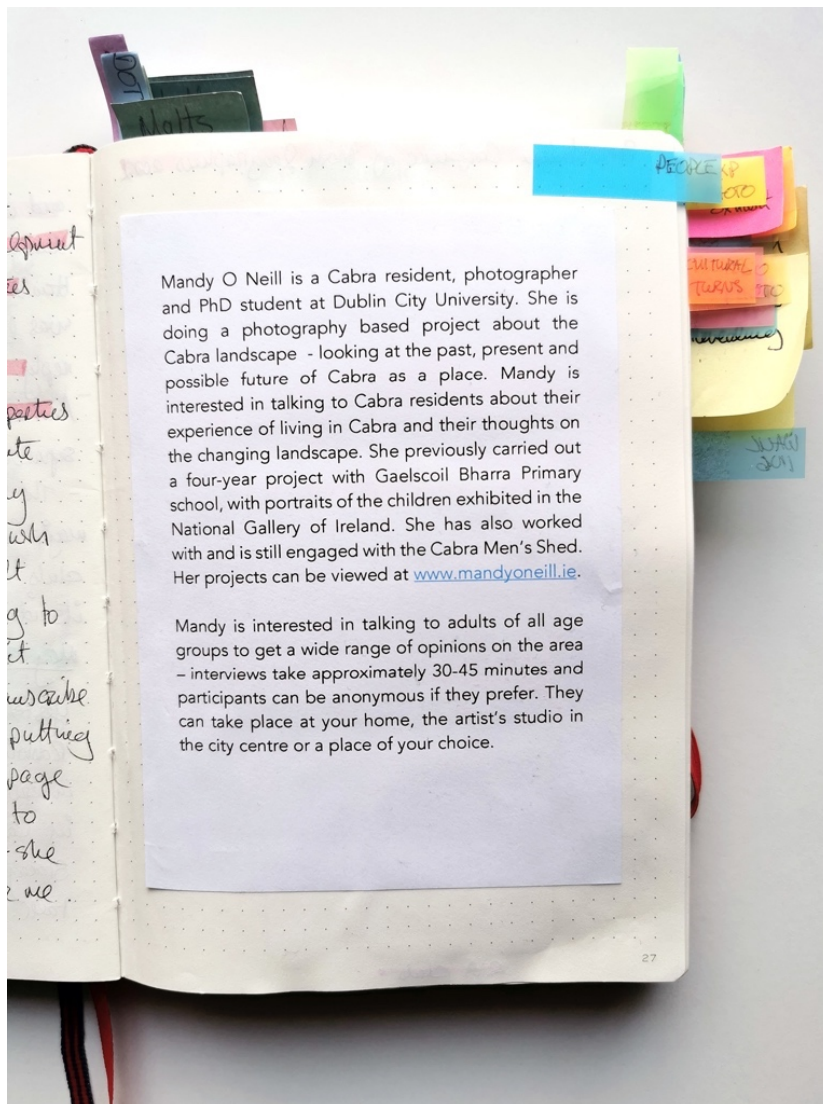 DOT
Malts
PEOPLE
CULTURAL
TURNS
Mandy O Neill is a Cabra resident, photographer
and PhD student at Dublin City University. She is
doing a photography based project about the
Cabra landscape  - looking at the past, present and
possible future of Cabra as a place. Mandy is
interested in talking to Cabra residents about their
experience of living in Cabra and their thoughts on
the changing landscape. She previously carried out
a four-year project with Gaelscoil Bharra Primary
school, with portraits of the children exhibited in the
National Gallery of Ireland. She has also worked
with and is still engaged with the Cabra Men's Shed.
Her projects can be viewed at www.mandyoneill.ie.
Mandy is interested in talking to adults of all age
groups to get a wide range of opinions on the area
– interviews take approximately 30-45 minutes and
participants can be anonymous if they prefer. They
can take place at your home, the artist's studio in
the city centre or a place of your choice.
to
putting
page
to
she
me.
27